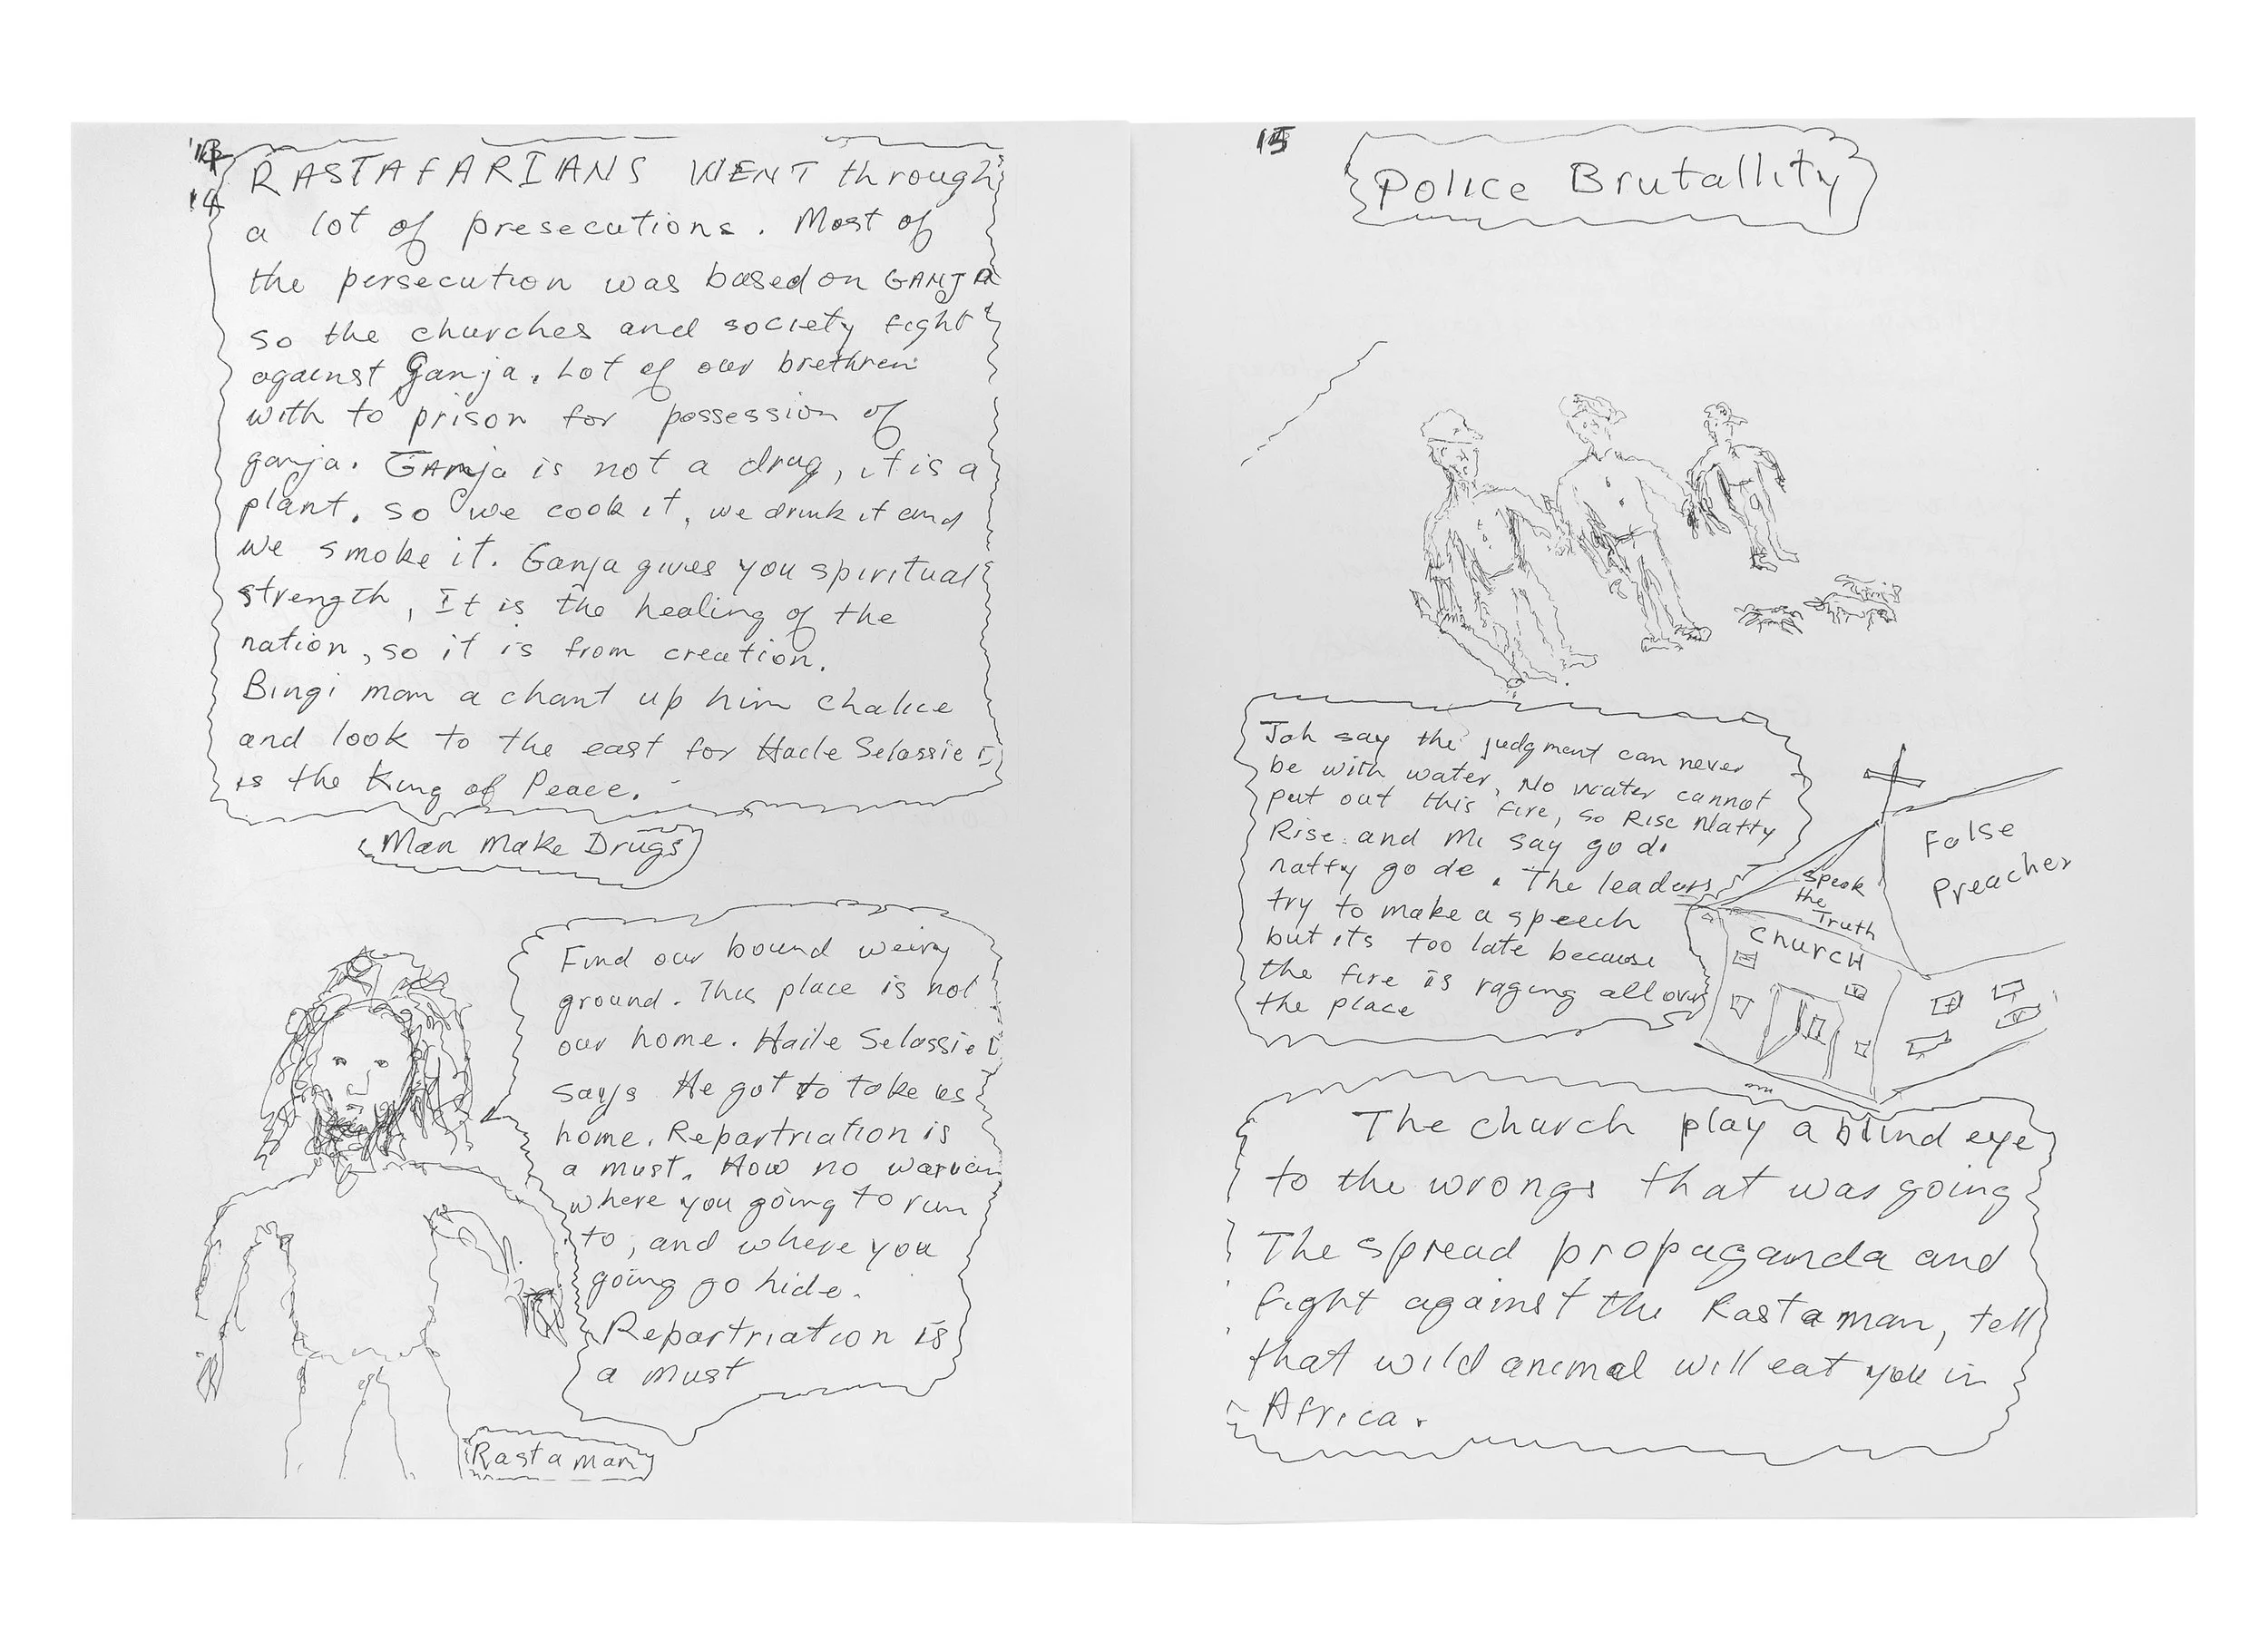 14
RASTAFARIANS WENT through
a lot of presecutions. Most of
the persecution was based on GANJA
so the churches and society fight
against Ganja. Lot of our brethren
with to prison for possession of
ganja. GAnja is not a drug, it is a
plant. So we cook it, we drink it and
we smoke it. Ganja gives you spiritual
strength, It is the healing of the
nation, so it is from creation.
Bingi man a chant up him chalice
and look to the east for Haile Selassie I
is the King of Peace.
Man Make Drugs
Find our bound weiry
ground. This place is not
our home. Haile Selassie I
says He got to take us
home. Repartriation is
a must. How no
where you going to run
to, and where you
going go hide.
Repartriation is
a must
Rasta man
15
Police Brutallity
Jah say the judgment can never
be with water, No water cannot
put out this fire, so Rise Natty
Rise and Mi say go di
natty go de. The leaders
try to make a speech
but its too late because
the fire is raging all over
the place
False
Preacher
Speak
the
Truth
CHURCH
The church play a blind eye
to the wrongs that was going
The spread propaganda and
fight against the Rasta man, tell
that wild animal will eat you in
Africa.